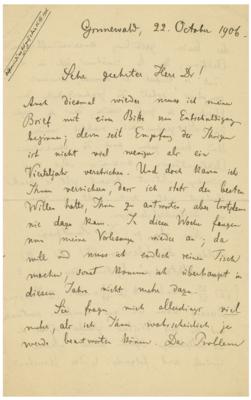 Grunewald, 22. October 1906.
Sehr geehrter Herr Dr!
Auch diesmal wieder muss ich meinen
Brief mit einer Bitte um Entschuldigung
beginnen; denn seit Empfang der Ihrigen
ist nicht viel weniger als ein
Vierteljahr verstrichen. Und doch kann ich
Ihnen versichern, dass ich stets den besten
Willen hatte, Ihnen zu antworten, aber trotzdem
nie dazu kam. In dieser Woche fangen
nun meine Vorlesungen wieder an; da
will und muss ich endlich reinen Tisch
machen, sonst komme ich überhaupt in
diesem Jahre nicht mehr dazu.
Sie fragen mich allerdings viel
mehr, als ich Ihnen wahrscheinlich je
werde beantworten können. Das Problem